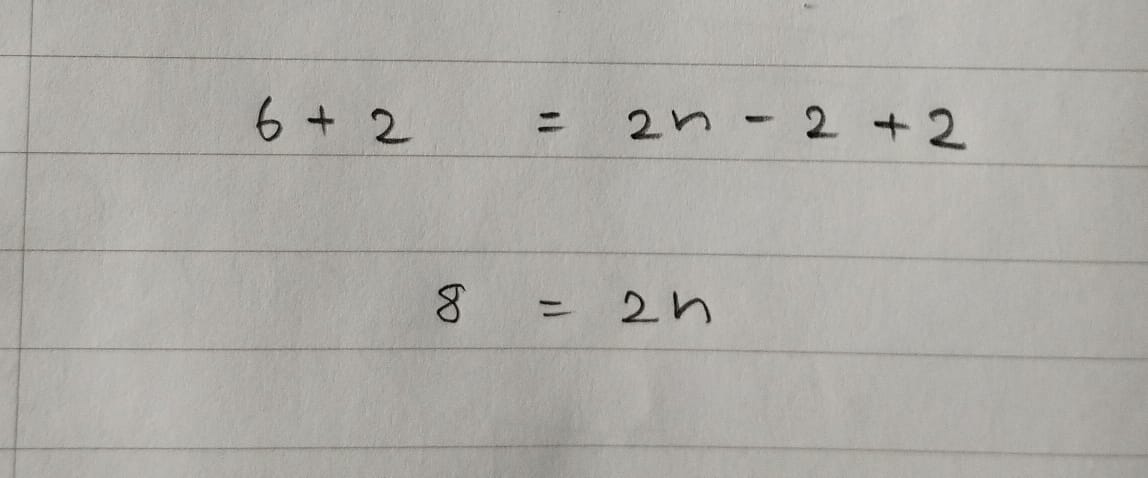 6 + 2 = 2n - 2 + 2
8 = 2n